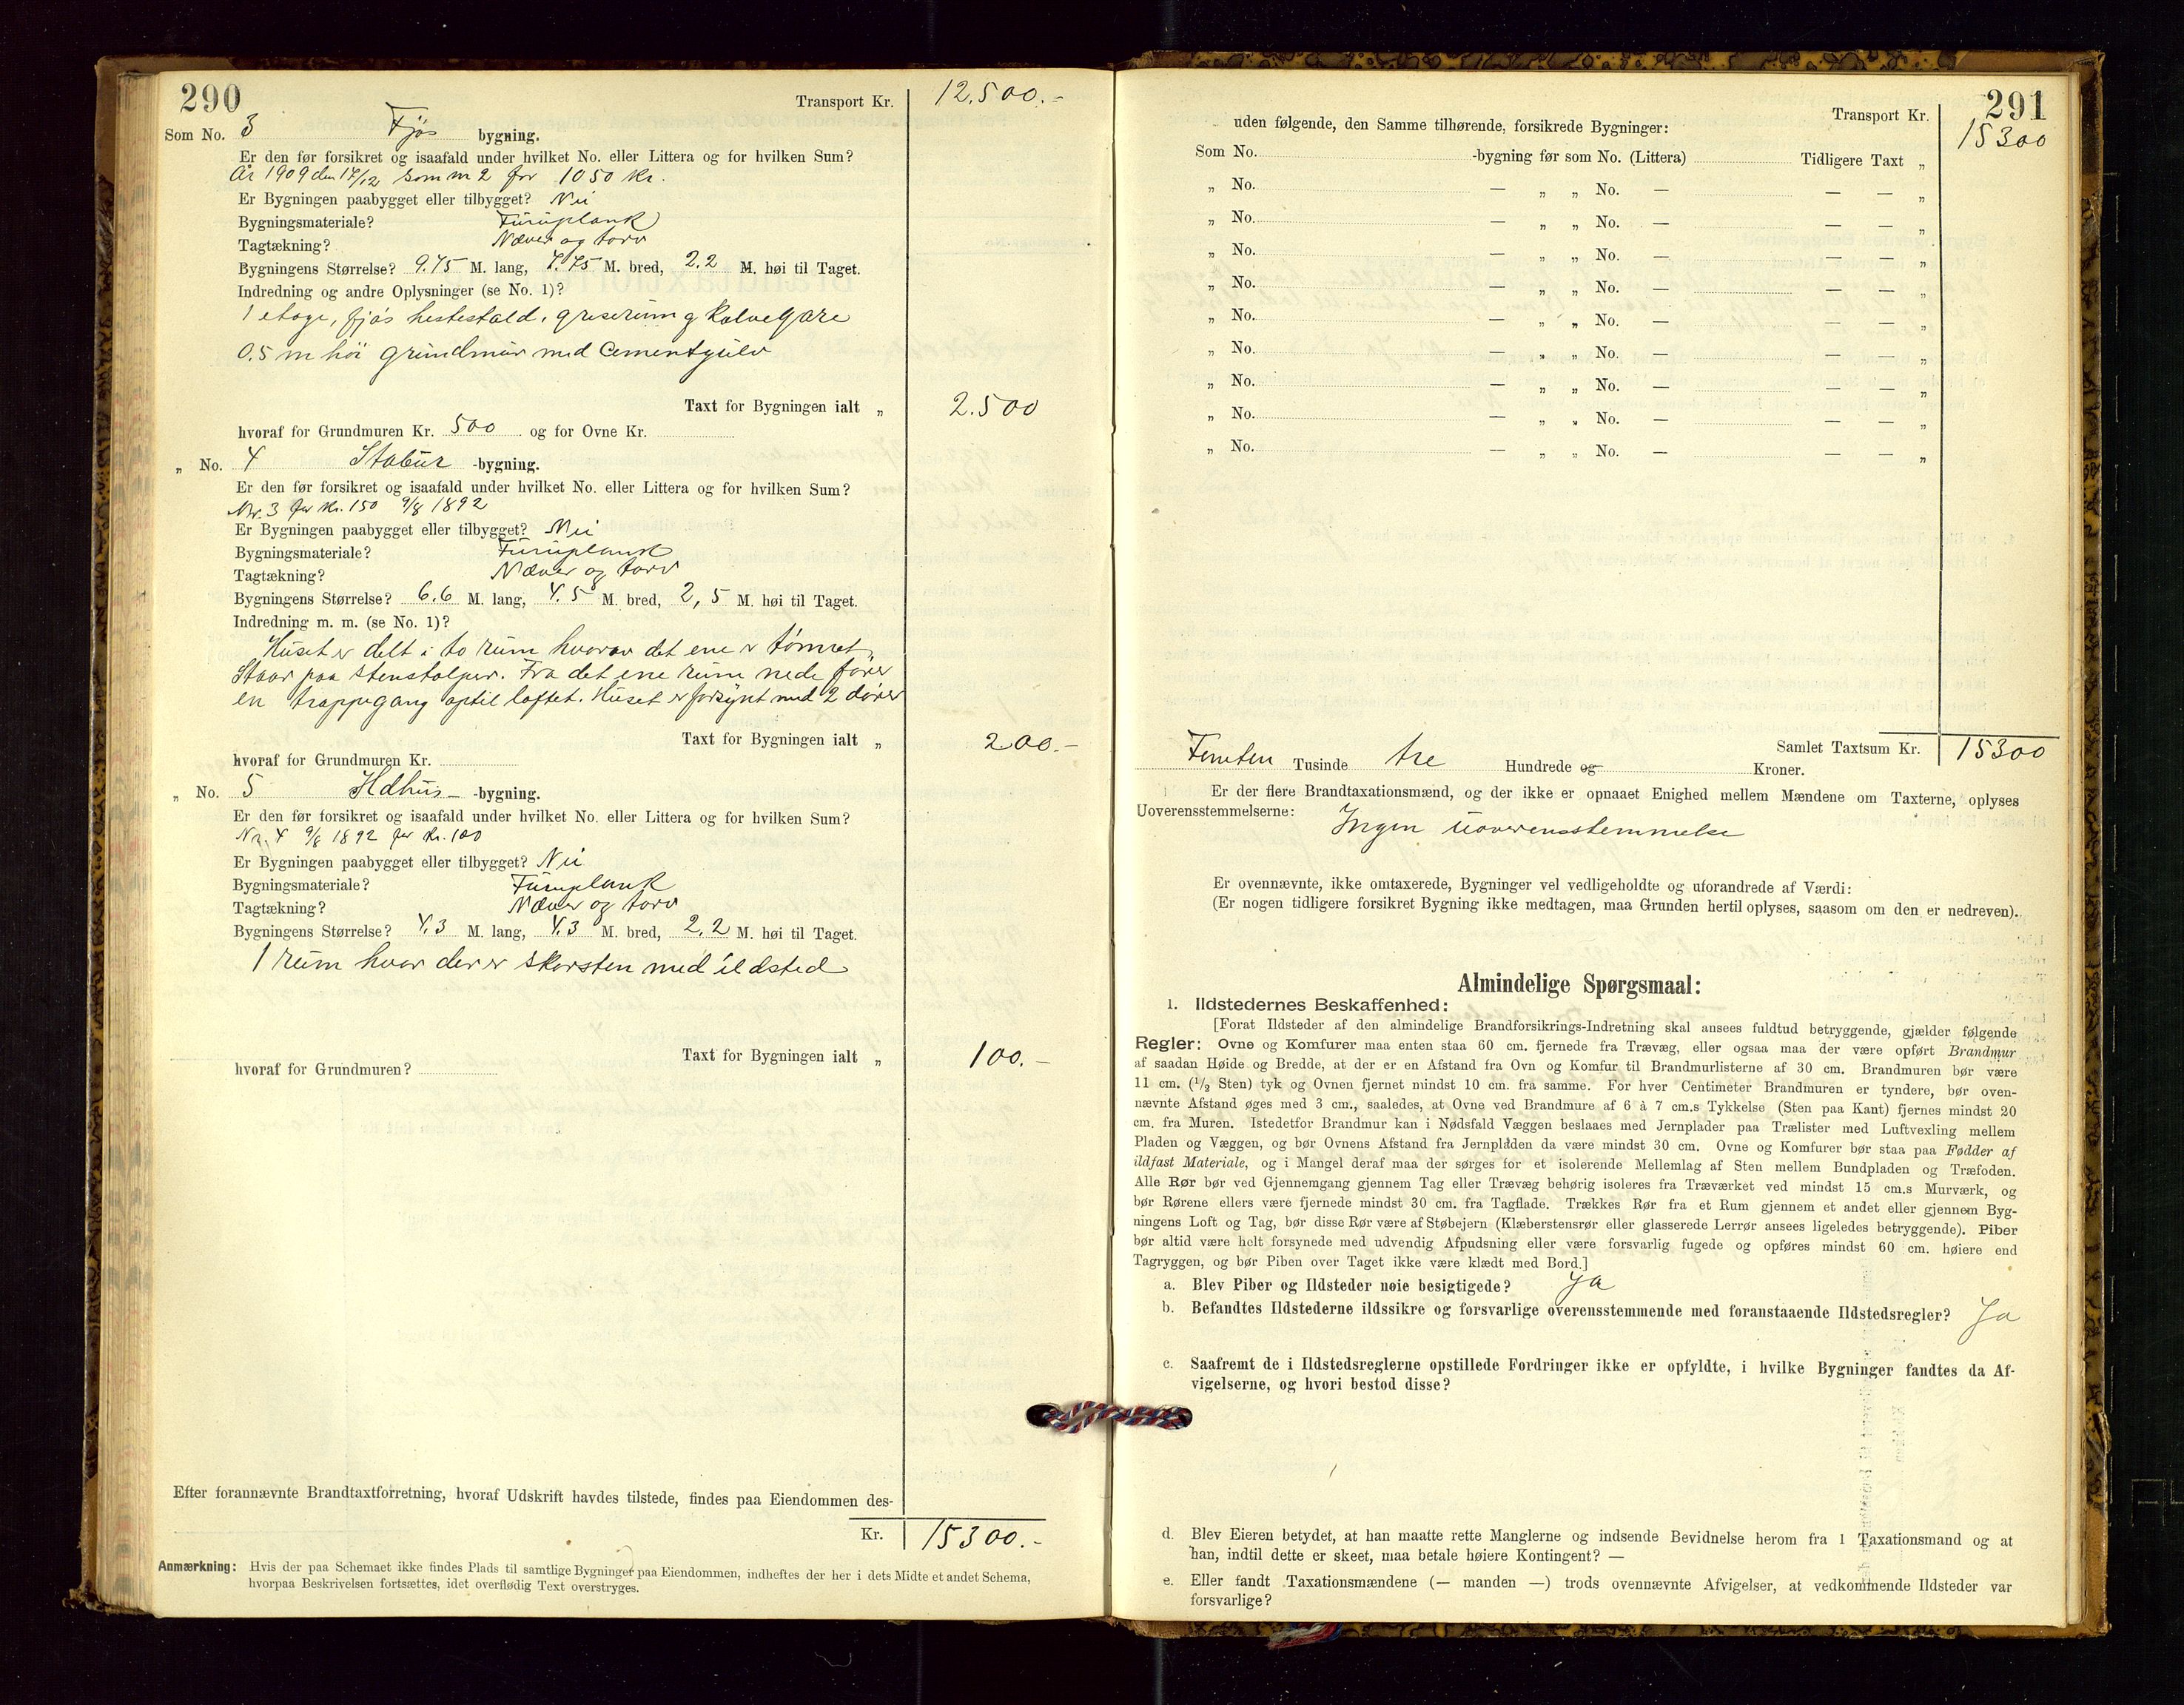 290
Transport Kr. 12.500.-
Som No. 3 Fjøs bygning.
Er den før forsikret og isaafald under hvilket No. eller Littera og for hvilken Sum?
År 1909 den 17/12 som nr 2 for 1050 Kr.
Er Bygningen paabygget eller tilbygget? Nei
Bygningsmateriale? Furuplank
Tagtækning? Næver og torv
Bygningens Størrelse? 9.75 M. lang, 7.75 M. bred, 2.2 M. høi til Taget.
Indredning og andre Oplysninger (se No. 1)?
1 etage, fjøs hestestald, griserum og Kalvegare
0.5 m høi grundmur med Cementgulv
Taxt for Bygningen ialt „ 2.500
hvoraf for Grundmuren Kr. 500 og for Ovne Kr.
„ No. 4 Stabur -bygning.
Er den før forsikret og isaafald under hvilket No. eller Littera og for hvilken Sum?
Nr. 3 for Kr. 150 9/8 1892
Er Bygningen paabygget eller tilbygget? Nei
Bygningsmateriale? Furuplank
Tagtækning? Næver og torv
Bygningens Størrelse? 6.6 M. lang, 4.5 M. bred, 2,5 M. høi til Taget.
Indredning m. m. (se No. 1)?
Huset er delt i to rum hvorav det ene er tømret,
Staar paa stenstolper. Fra det ene rum nede fører
en trappegang optil loftet. Huset er forsynt med 2 dører
Taxt for Bygningen ialt „ 200.-
hvoraf for Grundmuren Kr.
„ No. 5 Ildhus -bygning.
Er den før forsikret og isaafald under hvilket No. eller Littera og for hvilken Sum?
Nr. 4 9/8 1892 for Kr. 100
Er Bygningen paabygget eller tilbygget? Nei
Bygningsmateriale? Furuplank
Tagtækning? Næver og torv
Bygningens Størrelse? 4.3 M. lang, 4.3 M. bred, 2.2 M. høi til Taget.
1 rum hvor der er skorsten med ildsted
Taxt for Bygningen ialt „ 100.-
hvoraf for Grundmuren?
Efter forannævnte Brandtaxtforretning, hvoraf Udskrift havdes tilstede, findes paa Eiendommen des-
Kr. 15300.-
Anmærkning: Hvis der paa Schemaet ikke findes Plads til samtlige Bygninger paa Eiendommen, indheftes der her i dets Midte et andet Schema,
hvorpaa Beskrivelsen fortsættes, idet overflødig Text overstryges.
291
Transport Kr. 15300
uden følgende, den Samme tilhørende, forsikrede Bygninger:
Som No. -bygning før som No. (Littera) Tidligere Taxt „
„ No. — „ „ No. — — — „
„ No. — „ „ No. — — — „
„ No. — „ „ No. — — — „
„ No. — „ „ No. — — — „
„ No. — „ „ No. — — — „
„ No. — „ „ No. — — — „
„ No. — „ „ No. — — — „
„ No. — „ „ No. — — — „
„ No. — „ „ No. — — — „
Samlet Taxtsum Kr. 15300
Femten Tusinde tre Hundrede og Kroner.
Er der flere Brandtaxationsmænd, og der ikke er opnaaet Enighed mellem Mændene om Taxterne, oplyses
Uoverensstemmelserne: Ingen uoverensstemmelse
Er ovennævnte, ikke omtaxerede, Bygninger vel vedligeholdte og uforandrede af Værdi:
(Er nogen tidligere forsikret Bygning ikke medtagen, maa Grunden hertil oplyses, saasom om den er nedreven).
Almindelige Spørgsmaal:
1. Ildstedernes Beskaffenhed:
[Forat Ildsteder af den almindelige Brandforsikrings-Indretning skal ansees fuldtud betryggende, gjælder følgende
Regler: Ovne og Komfurer maa enten staa 60 cm. fjernede fra Trævæg, eller ogsaa maa der være opført Brandmur
af saadan Høide og Bredde, at der er en Afstand fra Ovn og Komfur til Brandmurlisterne af 30 cm. Brandmuren bør være
11 cm. (1/2 Sten) tyk og Ovnen fjernet mindst 10 cm. fra samme. For hver Centimeter Brandmuren er tyndere, bør oven-
nævnte Afstand øges med 3 cm., saaledes, at Ovne ved Brandmure af 6 à 7 cm.s Tykkelse (Sten paa Kant) fjernes mindst 20
cm. fra Muren. Istedetfor Brandmur kan i Nødsfald Væggen beslaaes med Jernplader paa Trælister med Luftvexling mellem
Pladen og Væggen, og bør Ovnens Afstand fra Jernpladen da være mindst 30 cm. Ovne og Komfurer bør staa paa Fødder af
ildfast Materiale, og i Mangel deraf maa der sørges for et isolerende Mellemlag af Sten mellem Bundpladen og Træfoden.
Alle Rør bør ved Gjennemgang gjennem Tag eller Trævæg behørig isoleres fra Træværket ved mindst 15 cm.s Murværk, og
bør Rørene ellers være fjernede mindst 30 cm. fra Tagflade. Trækkes Rør fra et Rum gjennem et andet eller gjennem Byg-
ningens Loft og Tag, bør disse Rør være af Støbejern (Klæberstensrør eller glasserede Lerrør ansees ligeledes betryggende). Piber
bør altid være helt forsynede med udvendig Afpudsning eller være forsvarlig fugede og opføres mindst 60 cm. høiere end
Tagryggen, og bør Piben over Taget ikke være klædt med Bord.]
a. Blev Piber og Ildsteder nøie besigtigede? Ja
b. Befandtes Ildstederne ildssikre og forsvarlige overensstemmende med foranstaaende Ildstedsregler? Ja
c. Saafremt de i Ildstedsreglerne opstillede Fordringer ikke er opfyldte, i hvilke Bygninger fandtes da Af-
vigelserne, og hvori bestod disse?
d. Blev Eieren betydet, at han maatte rette Manglerne og indsende Bevidnelse herom fra 1 Taxationsmand og at
han, indtil dette er skeet, maa betale høiere Kontingent? —
e. Eller fandt Taxationsmændene (— manden —) trods ovennævnte Afvigelser, at vedkommende Ildsteder var
forsvarlige?